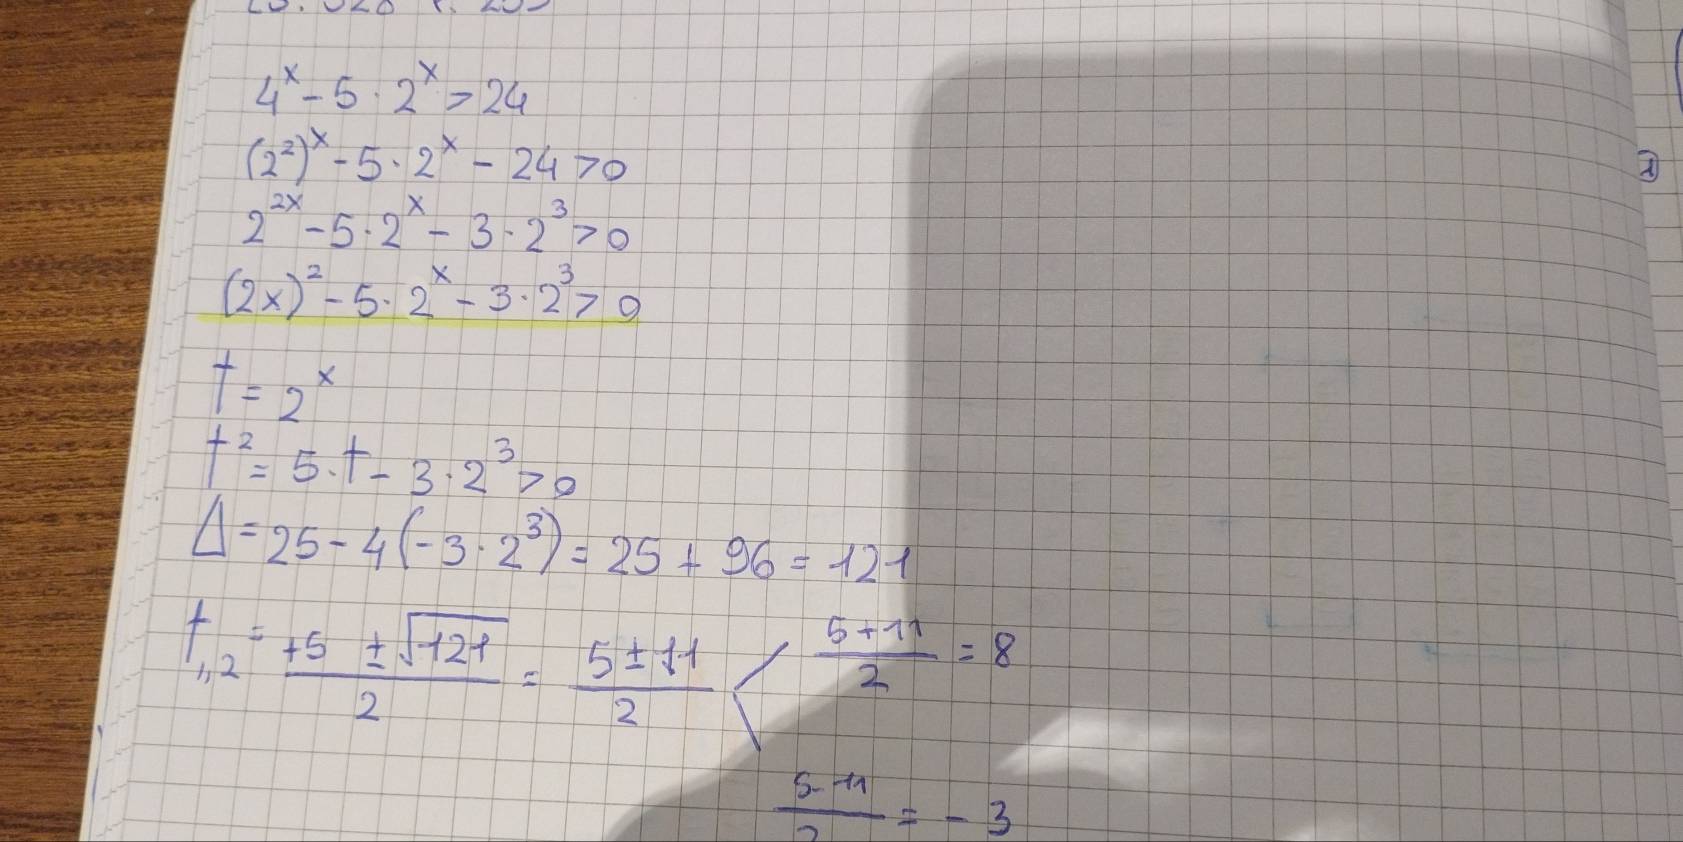 4^x - 5 · 2^x > 24
(2^2)^x - 5 · 2^x - 24 > 0
2^2x - 5 · 2^x - 3 · 2^3 > 0
(2x)^2 - 5 · 2^x - 3 · 2^3 > 0
t = 2^x
t^2 = 5 · t - 3 · 2^3 > 0
Δ = 25 - 4(-3 · 2^3) = 25 + 96 = 121
t1,2 = (+5 ± √121)/2 = (5 ± 11)/2 < (5+11)/2 = 8
(5-11)/2 = -3